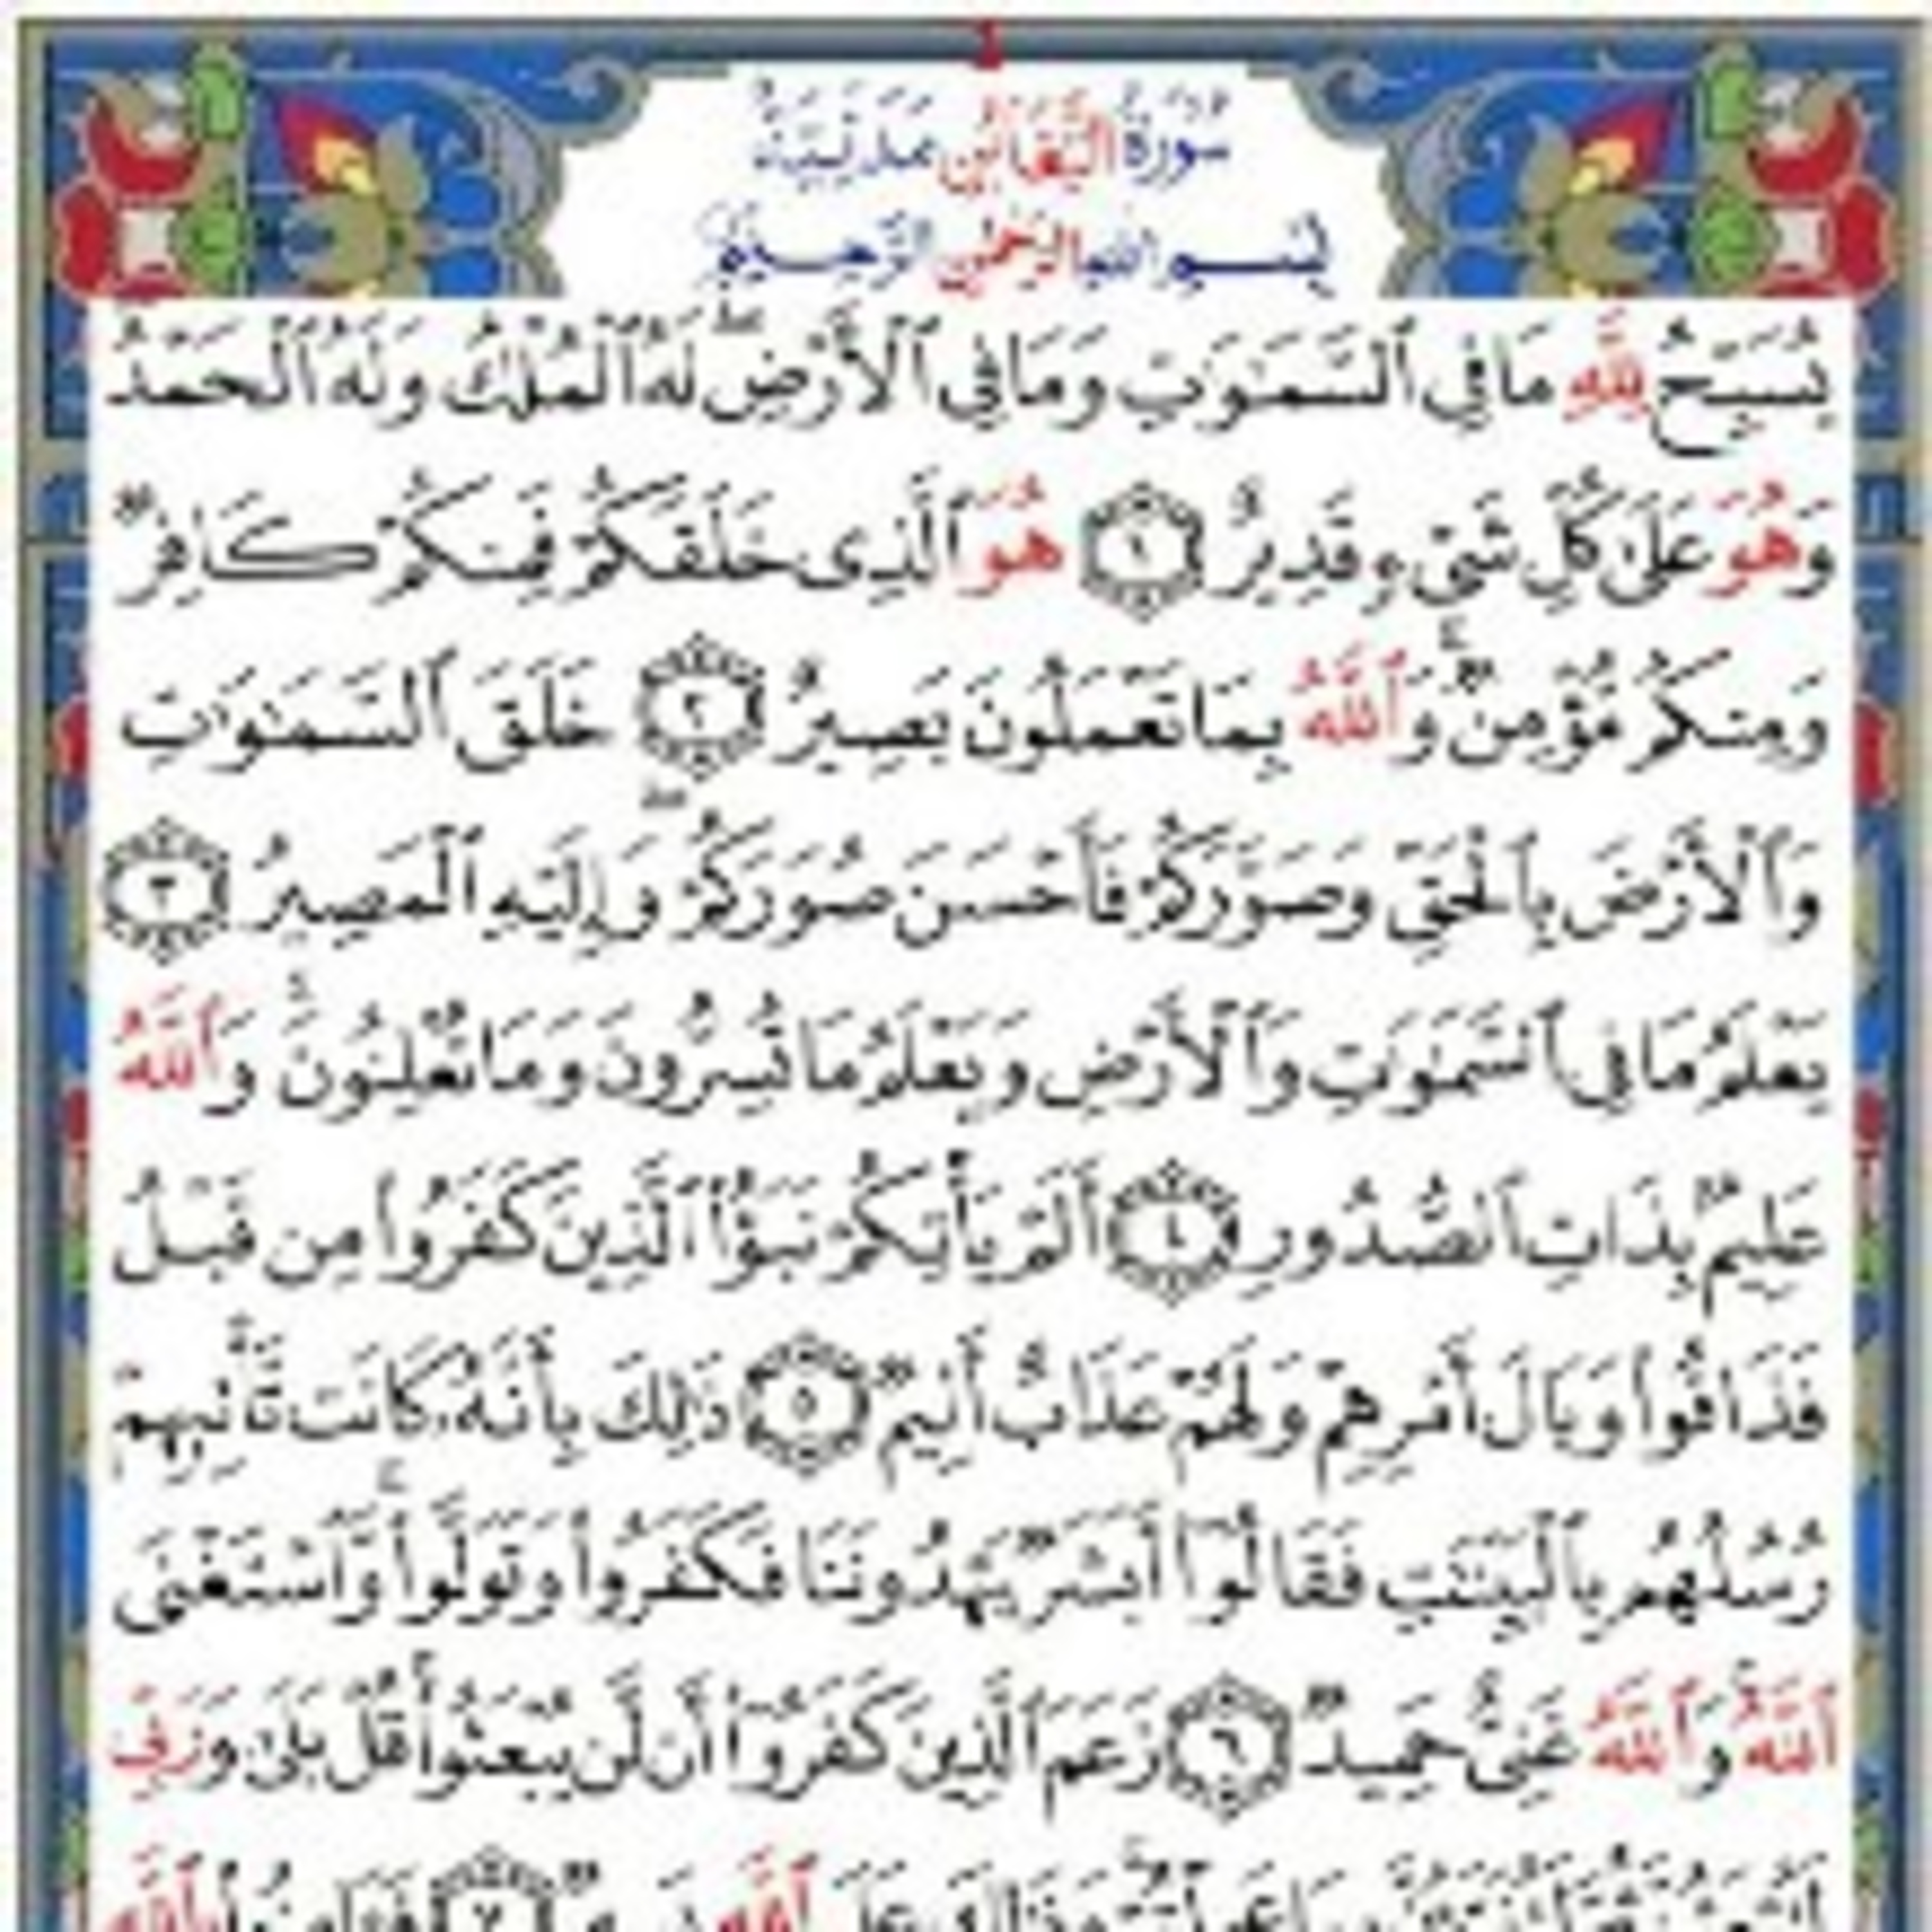 سُورَةُ التَّغَابُنِ مَدَنِيَّةٌ
بِسْمِ اللهِ الرَّحْمٰنِ الرَّحِيمِ
يُسَبِّحُ لِلَّهِ مَا فِي ٱلسَّمَٰوَٰتِ وَمَا فِي ٱلْأَرْضِۖ لَهُ ٱلْمُلْكُ وَلَهُ ٱلْحَمْدُ
وَهُوَ عَلَىٰ كُلِّ شَيْءٍ قَدِيرٌ ١ هُوَ ٱلَّذِى خَلَقَكُمْ فَمِنكُمْ كَافِرٌ
وَمِنكُم مُّؤْمِنٌۚ وَٱللَّهُ بِمَا تَعْمَلُونَ بَصِيرٌ ٢ خَلَقَ ٱلسَّمَٰوَٰتِ
وَٱلْأَرْضَ بِٱلْحَقِّ وَصَوَّرَكُمْ فَأَحْسَنَ صُوَرَكُمْۖ وَإِلَيْهِ ٱلْمَصِيرُ ٣
يَعْلَمُ مَا فِي ٱلسَّمَٰوَٰتِ وَٱلْأَرْضِ وَيَعْلَمُ مَا تُسِرُّونَ وَمَا تُعْلِنُونَۚ وَٱللَّهُ
عَلِيمٌۢ بِذَاتِ ٱلصُّدُورِ ٤ أَلَمْ يَأْتِكُمْ نَبَؤُا۟ ٱلَّذِينَ كَفَرُوا۟ مِن قَبْلُ
فَذَاقُوا۟ وَبَالَ أَمْرِهِمْ وَلَهُمْ عَذَابٌ أَلِيمٌ ٥ ذَٰلِكَ بِأَنَّهُۥ كَانَت تَّأْتِيهِمْ
رُسُلُهُم بِٱلْبَيِّنَٰتِ فَقَالُوٓا۟ أَبَشَرٌ يَهْدُونَنَا فَكَفَرُوا۟ وَتَوَلَّوا۟ۚ وَّٱسْتَغْنَى
ٱللَّهُۚ وَٱللَّهُ غَنِيٌّ حَمِيدٌ ٦ زَعَمَ ٱلَّذِينَ كَفَرُوٓا۟ أَن لَّن يُبْعَثُوا۟ۚ قُلْ بَلَىٰ وَرَبِّي